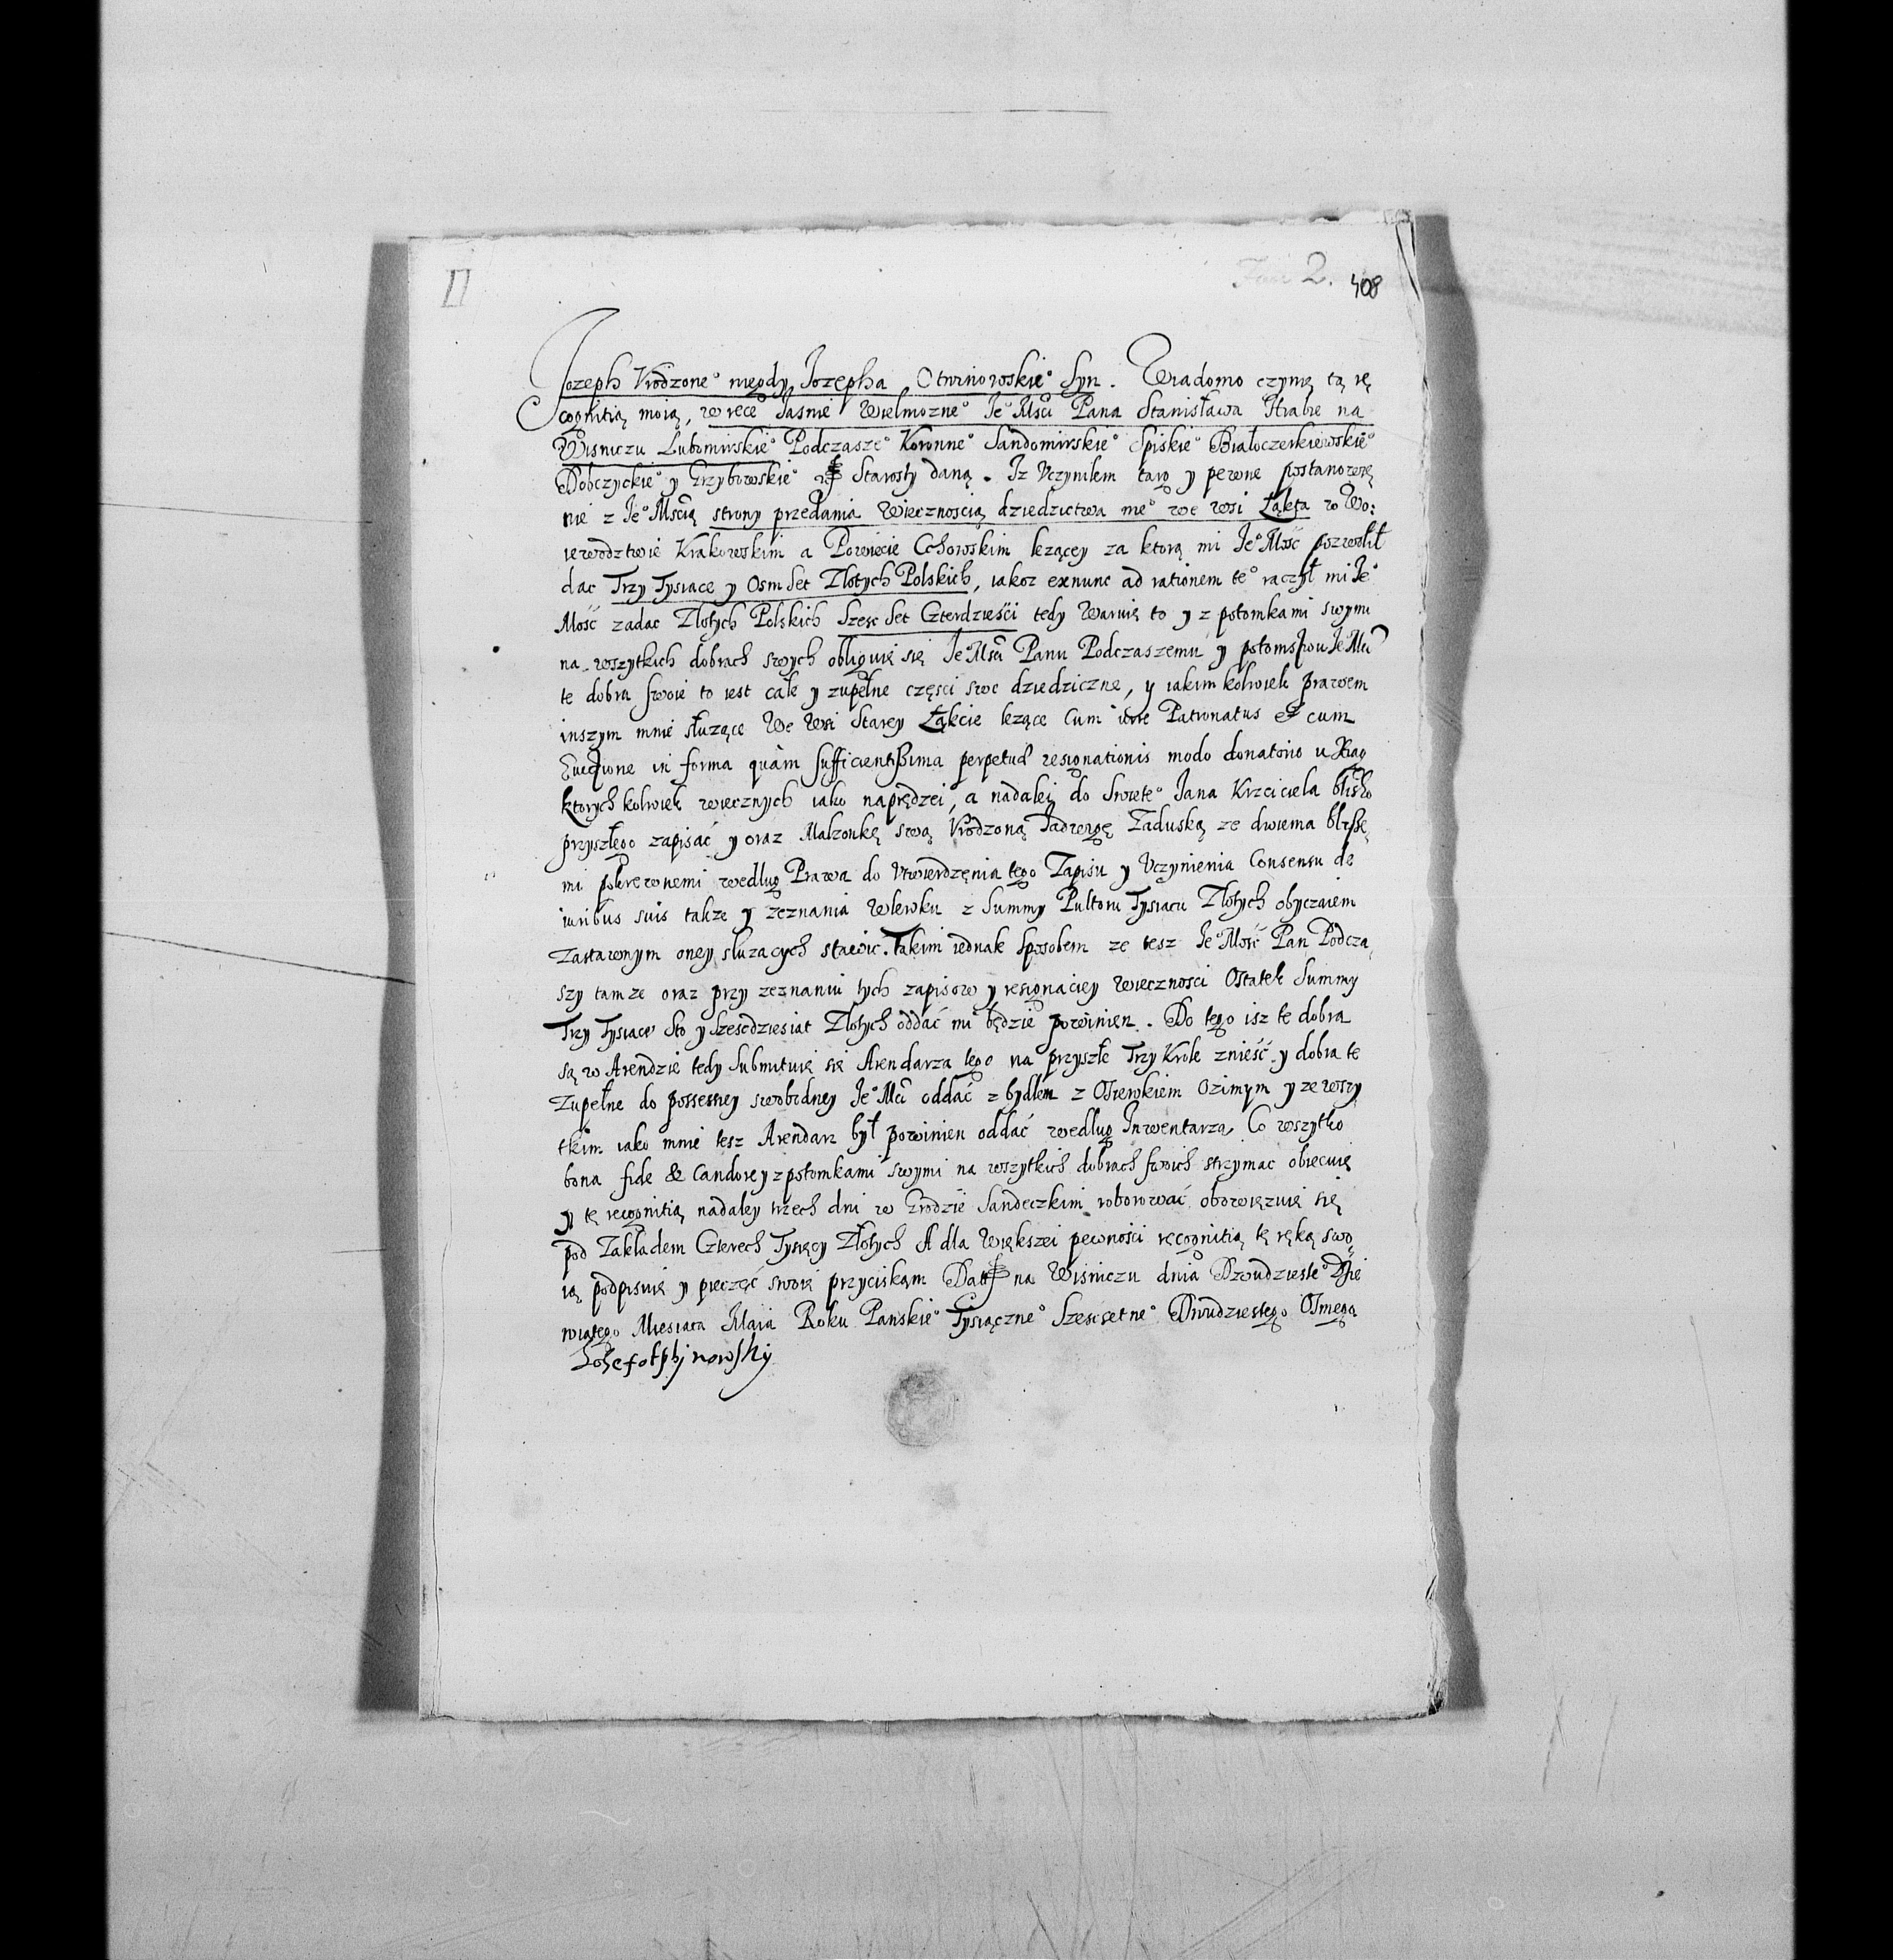 II
2. 408
Jozeph Vrodzone° niegdy Jozepha Otwinowskie° Syn. Wiadomo czynię tą re
cognitią moią, w ręce Jasnie Wielmozne° Je° Msći Pana Stanisława Hrabie na
Wisniczu Lubomirskie° Podczasze° Koronne° Sandomirskie° Spiskie° Białoczerkiewskie°
Dobczyckie° y Grzybowskie° Starosty daną. Iz Vczyniłem targ y pewne postanowie
nie z Je° Mscią strony przedania Wiecznoscią dziedzictwa me° we wsi Łąkta w Wo:
iewodztwie Krakowskim a Powiecie Cchowskim lezącey za ktorą mi Je° Mość pozwolił
dac Trzy Tysiące y Osm Set Złotych Polskich, iakoz exnunc ad rationem te° raczył mi Je°
Mość zadac Złotych Polskich Szesc Set Czterdzieści tedy Waruię to y z potomkami swymi
na wszytkich dobrach swych obliguię się Je° Msći Panu Podczaszemu y potomstwu Je° Mći
te dobra swoie to iest całe y zupełne częsci swe dziedziczne, y iakimkolwiek prawem
inszym mnie słuzące We Wsi Starey Łąkcie lezące cum iure Patronatus et cum
Euictione in forma quàm sufficientissima perpetuò resignationis modo donatorio u Xiąg
ktorychkolwiek wiecznych iako naprędzei, a nadaley do Swięte° Jana Krzciciela blisko
przyszłego zapisać y oraz Małzonkę swą Vrodzoną Jadwigę Zaduską ze dwiema blisze
mi pokrewnemi według Prawa do Vtwierdzęnia tego Zapisu y Vczynienia Consensu de
iuribus suis takze y zeznania Wlewku z Summy Pułtoru Tysiącu Złotych obyczaiem
Zastawnym oney słuzących stawic. Takim iednak sposobem ze tesz Je° Mość Pan Podcza
szy tamze oraz przy zeznaniu tych zapisow y resignaciey wiecznosci Ostatek Summy
Trzy Tysiące Sto y Szescdziesiat Złotych oddać mi będzie powinien. Do tego isz te dobra
są w Arendzie tedy Submituię się Arendarza tego na przyszłe Trzy Krole znieść y dobra te
Zupełne do possessiey swobodney Je° Mći oddać z bydłem z Osiewkiem Ozimym y ze wszy
tkim iako mnie tesz Arendarz był powinien oddać według Inwentarza, Co wszytko
bona fide & Candore y z potomkami swymi na wszytkich dobrach swoich strzymac obiecuię
y tę recognitią nadaley trzech dni w Grodzie Sandeczkim roborować obowięzuię się
pod Zakładem Czterech Tysięcy Złotych A dla Większei pewności recognitią tę ręką swo
ią podpisuię y pieczęć swoię przyciskam Datt na Wisniczu dnia Dzwudzieste° Dzie
wiątego Miesiaca Maia Roku Panskie° Tysiączne° Szescsetne° Dwudziestego Osmego